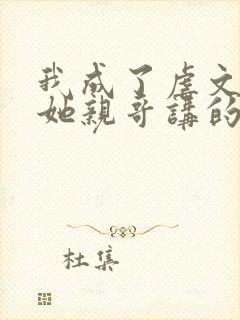 我成了虐文
她亲哥講的
杜集